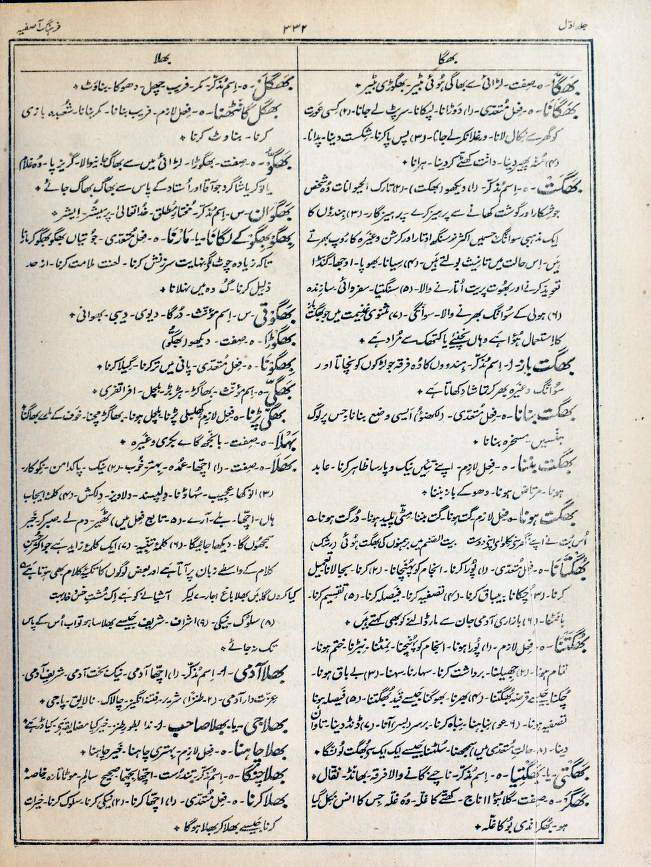 جلد اوّل
۳۳۲
فرہنگ آصفیہ
بھگا
بھگّا - ہ - صفت - لڑائی سے بھاگی ہوئی بٹیر - بھگوڑی بٹیر *
بھگانا - ہ - فعل متعدی - (۱) دوڑانا - لپکانا - سرپٹ لے جانا - (۲) کسی عورت
کو گھر سے نکال لانا - ورغلا کر لے جانا - (۳) پس پا کرنا - شکست دینا -
(۴) منہ پھیر دینا - دانت کھٹے کر دینا - ہرانا *
بھگت - ہ - اسم مذکر - (۱) دیکھو (بھکت) - (۲) تارک الحیوانات وہ شخص
جو شکار اور گوشت کھانے سے پرہیز کرے پرہیزگار - (۳) ہندوں کا
ایک مذہبی سوانگ جسمیں اکثر نرسنگہ اوتار اور کرشن وغیرہ کا روپ بھرتے
ہیں - اِس حالت میں تانیث بولتے ہیں - (۴) سیانا - بھوپا - اوجھا - گنڈا
تعویذ کرنے اور بھوت پریت اُتارنے والا - (۵) سنگتیا - سفردائی - سازندہ
(۶) ہولی کے سوانگ بھرنے والا - سوانگی - (۷) مثنوی غنیمت میں جو بھگت
کا استعمال ہوا ہے وہاں بھی سے مراد ہے *
بھگت باز - ا - اسم مذکر - ہندووں کا وہ فرقہ جو لڑکوں کو نچاتا اور
سوانگ وغیرہ بھر کر تماشا دکھاتا ہے *
بھگت بنانا - ہ - فعل متعدی - (لکھنؤ) ایسی وضع بنانا جس پر لوگ
ہنسیں - مسخرہ بنانا *
بھگت بننا - ہ - فعل لازم - اپنے تئیں نیک و پارسا ظاہر کرنا - عابد
ہونا - مرتاض ہونا - دھوکے باز بننا *
بھگت ہونا - ہ - فعل لازم - گت ہونا - گت بننا - مٹی پلید ہونا - درگت ہونا
بیت الصنم میں برہمنوں کی بھگت ہوئی (رشک)
بھگتانا - ہ - فعل متعدی - (۱) پورا کرنا - انجام کو پہنچانا - (۲) کرنا - بجا لانا تعمیل
کرنا - (۳) چکانا - بیباق کرنا - (۴) تصفیہ کرنا - فیصلہ کرنا - (۵) تقسیم کرنا
بانٹنا - (۶) بازاری آدمی جان سے مار ڈالنے کو بھی کہتے ہیں *
بھگتنا - ہ - فعل لازم - (۱) پورا ہونا - انجام کو پہنچنا - نمٹنا - نبڑنا - ختم ہونا -
تمام ہونا - (۲) جھیلنا - برداشت کرنا - سہارنا - سہنا - (۳) بے باق ہونا
چکنا جیسے قرضہ بھگتنا - (۴) بھرنا - بھوگنا جیسے قید بھگتنا - (۵) فیصلہ ہونا
تصفیہ ہونا - (۶) - نباہنا - نباہ کرنا - برسر آنا - (۷) ڈنڈ دینا - تاوان
دینا - (۸) حالت متعدی میں سمجھنا - سلٹنا جیسے ایک ایک سے بھگت لونگا *
بھگتی - یا - بھگتیا - ہ - اسم مذکر - ناچنے گانے والا فرقہ - بھانڈ - نقال *
بھگرو - ہ - صفت - گلا ہوا اناج - کھتے کا غلّہ - وہ غلّہ جس کا نکل گیا
ہو - کا غلّہ *
بھلا
بھگل - ہ - اسم مذکر - مکر - فریب - چھل - دھوکا - بناوٹ *
بھگل گانٹھنا - ہ - فعل لازم - فریب بنانا - مکر بنانا - شعبدہ بازی
کرنا - بناوٹ کرنا *
بھگو - ہ - صفت - بھگوڑا - لڑائی میں سے بھاگ جانیوالا - گریز پا - وہ غلام
یا نوکر یا شاگرد جو آقا اور اُستاد کے پاس سے بھاگ بھاگ جائے *
بھگوان - س - اسم مذکر - مختار مطلق - خدا تعالیٰ - پرمیشر - ایشر *
بھگو بھگو کے لگانا - یا - مارنا - ہ - فعل متعدی - جوتیاں بھگو بھگو کر مارنا
تاکہ زیادہ چوٹ لگے - نہایت سرزنش کرنا - لعنت ملامت کرنا - از حد
ذلیل کرنا - گُوہ میں نہلانا *
بھگوتی - س - اسم مؤنث - درگا - دیوی - دیبی - بھوانی *
بھگوڑا - ہ - صفت - دیکھو (بھگو)
بھگونا - ہ - فعل متعدی - پانی میں تر کرنا - گیلا کرنا *
بھگی - ہ - اسم مؤنث - بھاگڑ - ہڑبڑ - ہلچل - افراتفری *
بھگی پڑنا - ہ - فعل لازم - کھلبلی پڑنا - ہلچل ہونا - بھاگڑ مچنا - خوف کے مارے بھاگنا
بہلا - ہ - صفت - بانجھ گائے بکری وغیرہ *
بھلا - ہ - صفت - (۱) اچھا - عمدہ - بہتر - خوب - (۲) نیک - پاکدامن - نیکوکار
(۳) انوکھا - عجیب - سہانا - دلپسند - دلاویز - دلکش - (۴) کلمۂ ایجاب
ہاں - اچھا - بلے - آرے - (۵) تابع فعل میں) ٹھیر - دم لے - صبر کر - خیر
سمجھوں گا - دیکھا جائیگا - (۶) کلمۂ تنبیہ - (۷) ایک کلمۂ زائد ہے جو اکثر
کلام کے واسطے زبان پر آتا ہے اور بعض لوگوں کا تکیہ کلام بھی ہوتا ہے
کیا کروں گا میں بھلا باغ اجارے لیکر آشیانے کو ہے اک مشت خس
(۸) سلوک - نیکی - (۹) اشراف - شریف جیسے بھلا سا ہو تو اب اُس کے پاس
تک نہ جائے *
بھلا آدمی - ا - اسم مذکر - (۱) اچھا آدمی - نیک بخت آدمی - شریف آدمی -
عزت دار آدمی - (۲) طنزاً) شریر - فتنہ انگیز - چالاک - نالایق - پاجی *
بھلا جی - یا - بھلا صاحب - ا - ندا بطور طنز - خیر کیا مضائقہ ہے کیا ڈر ہے
بھلا چاہنا - ہ - فعل لازم - بہتری چاہنا - خیر چاہنا *
بھلا چنگا - ہ - اسم مذکر - تندرست - اچھا بچھا - صحیح سالم - موٹا تازہ - خاصہ *
بھلا کرنا - ہ - فعل متعدی - (۱) اچھا کرنا - (۲) نیکی کرنا - سلوک کرنا - خیرات
کرنا - جیسے بھلا کر بھلا ہوگا *